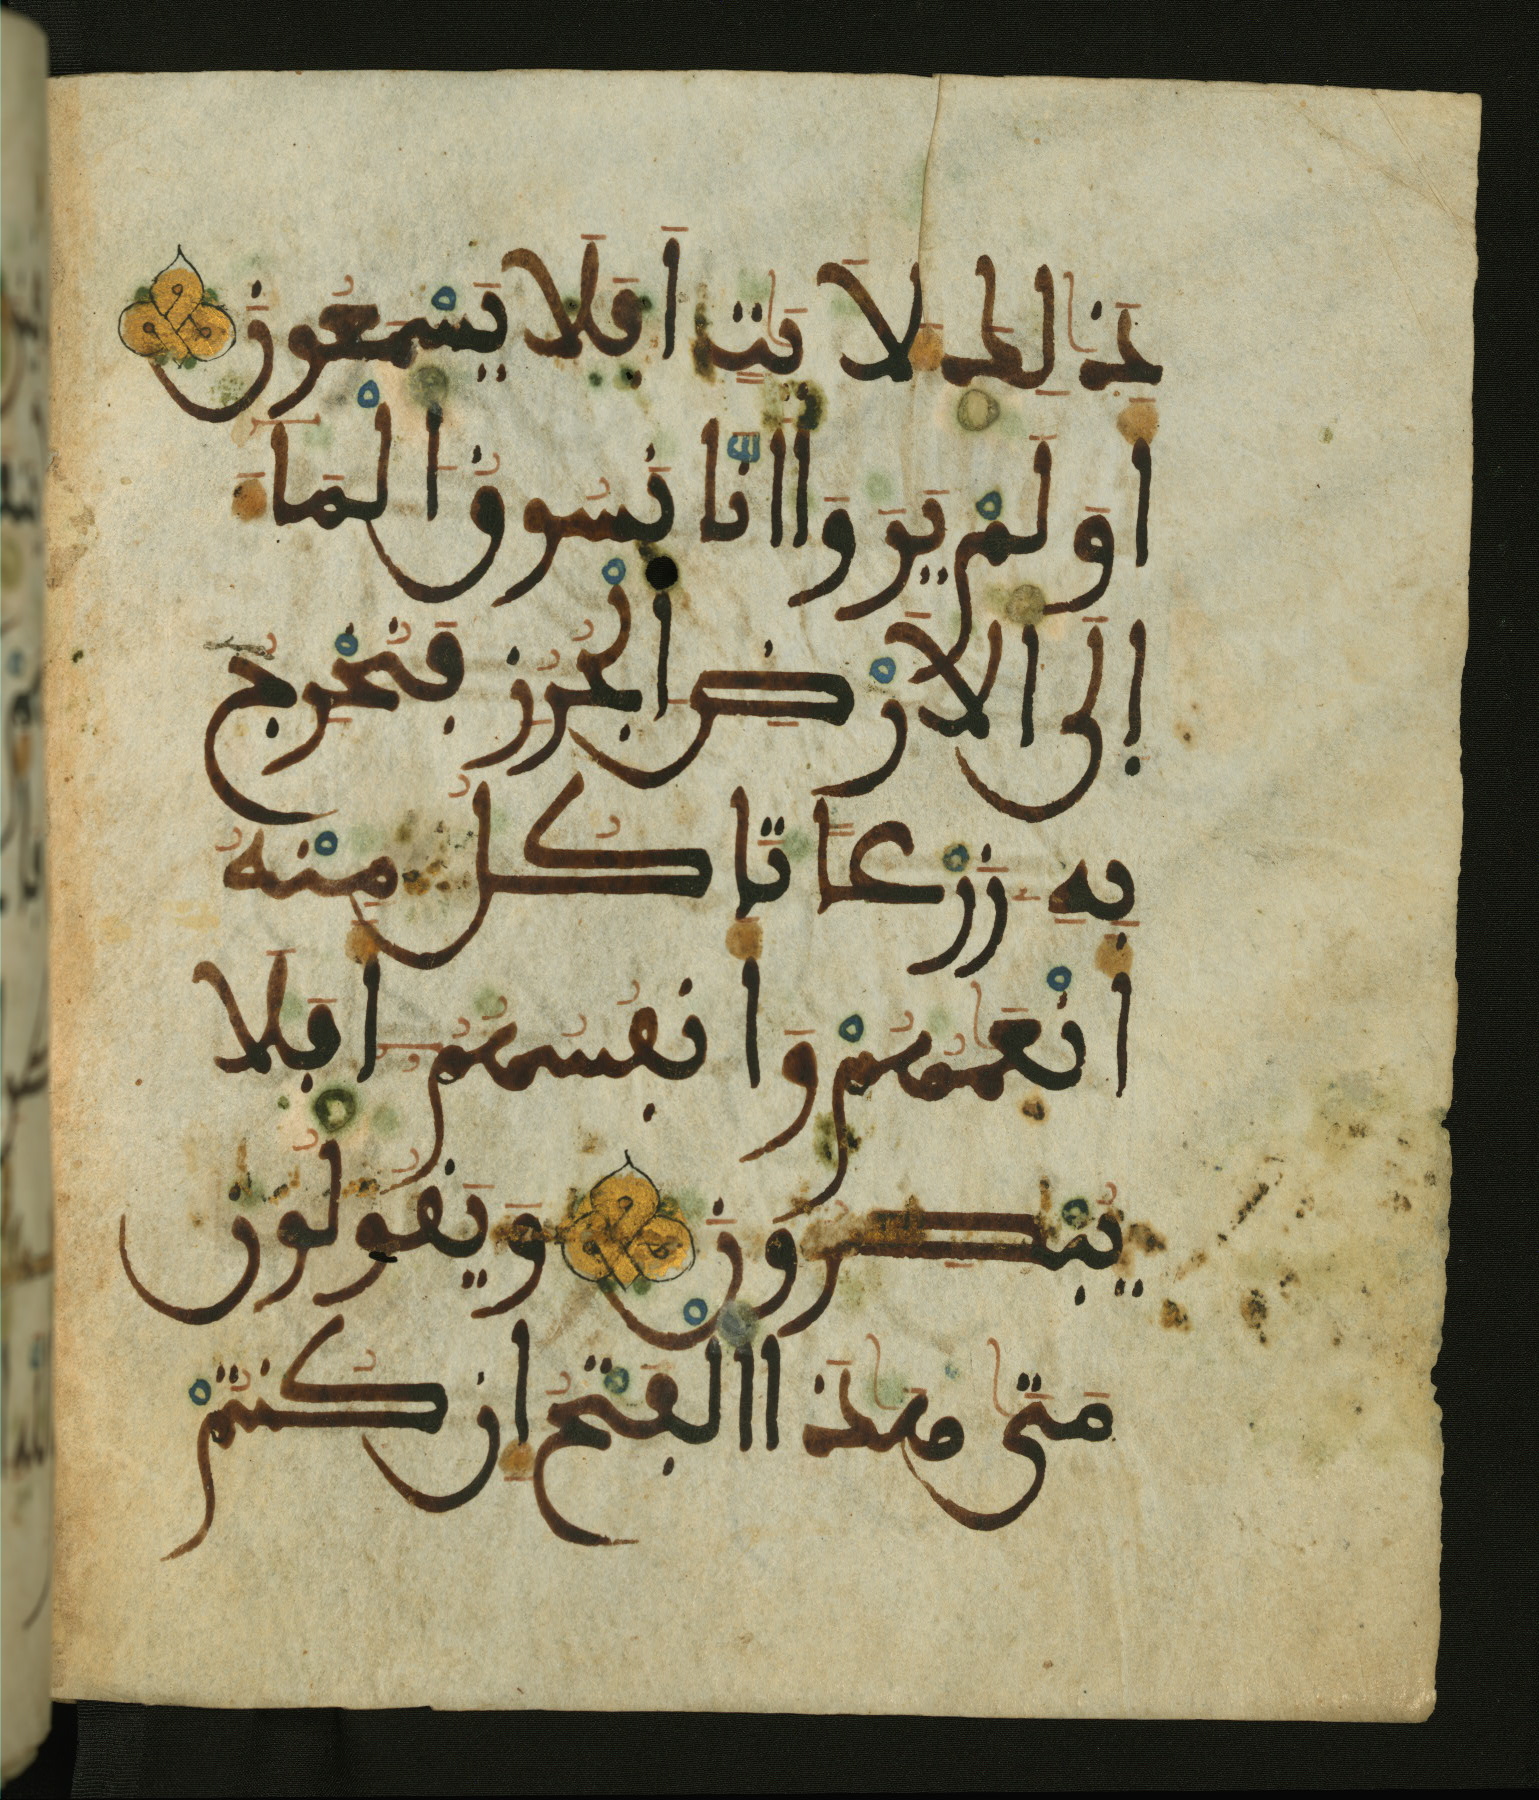 ذَٰلِكَ لَأٓيَٰتٍ أَفَلَا يَسْمَعُونَ
أَوَلَمْ يَرَوْا أَنَّا نَسُوقُ الْمَآءَ
إِلَى الْأَرْضِ الْجُرُزِ فَنُخْرِجُ
بِهِ زَرْعًا تَأْكُلُ مِنْهُ
أَنْعَٰمُهُمْ وَأَنفُسُهُمُ أَفَلَا
يُبْصِرُونَ وَيَقُولُونَ
مَتَىٰ هَٰذَا الْفَتْحُ إِن كُنتُمْ